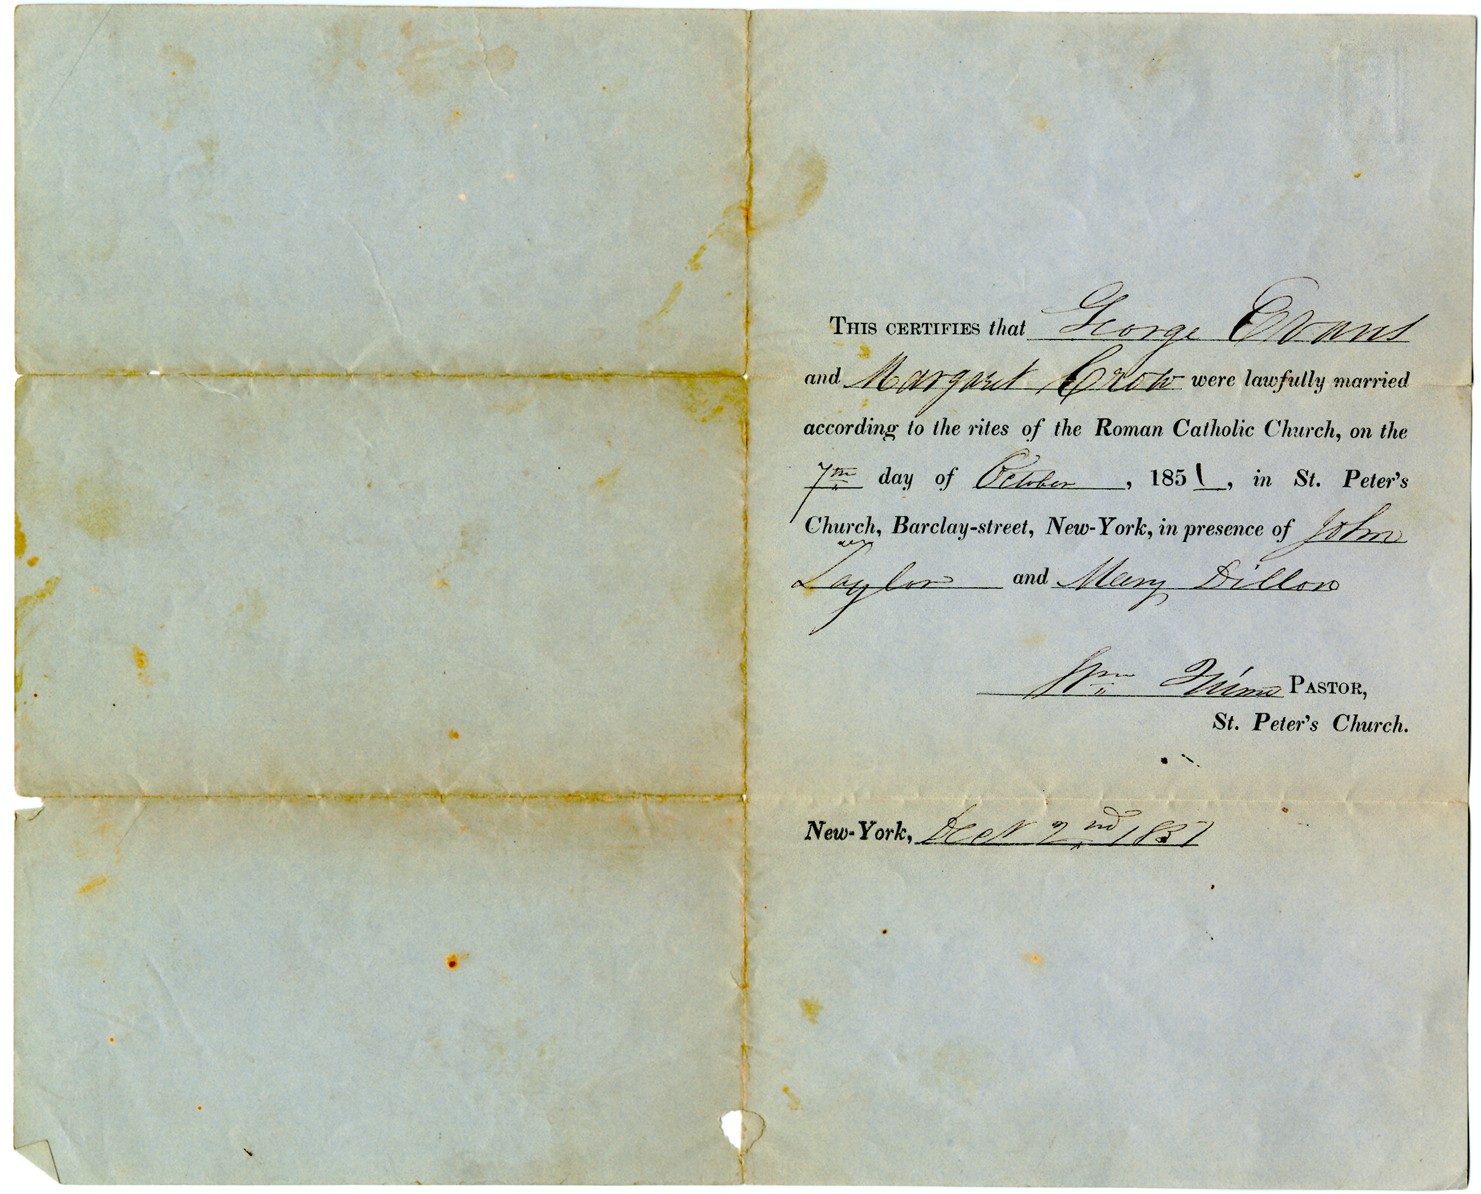 THIS CERTIFIES that George Evans
and Margaret Crow were lawfully married
according to the rites of the Roman Catholic Church, on the
7th day of October, 1851, in St. Peter's
Church, Barclay-street, New-York, in presence of John
Taylor and Mary Dillon
Wm Quinn PASTOR,
St. Peter's Church.
New-York, 2nd 1851